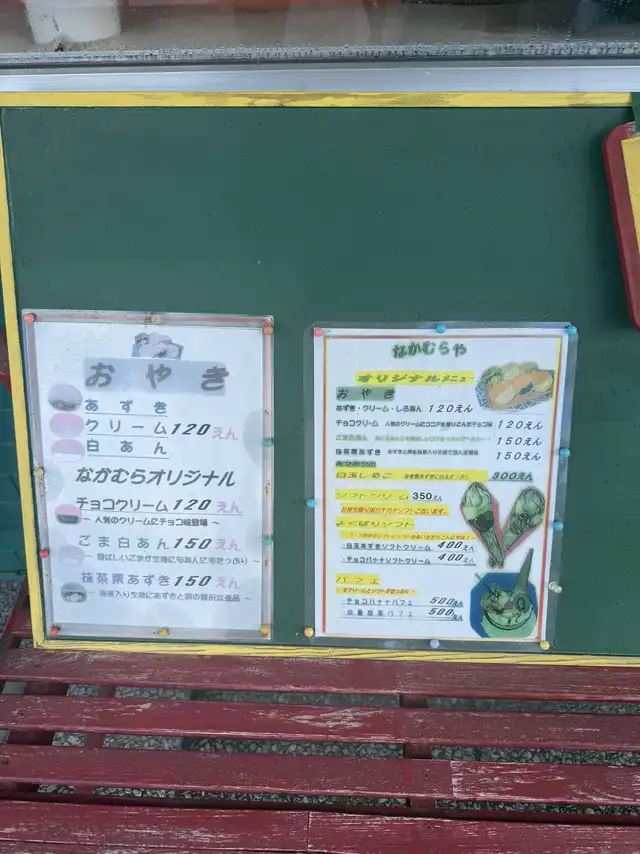 おやき
あずき
クリーム 120えん
白あん
なかむらオリジナル
チョコクリーム 120えん
～人気のクリームにチョコ味登場～
ごま白あん 150えん
～香ばしいごまが生地にもあんにもたっぷり～
抹茶栗あずき 150えん
～抹茶入り生地にあずきと栗の贅沢な逸品～
なかむらや
オリジナルメニュー
おやき
あずき・クリーム・しろあん 120えん
チョコクリーム 人気のクリームにココアを練りこんだチョコ味 120えん
ごま白あん 150えん
抹茶栗あずき 150えん
白玉しるこ 300えん
ソフトクリーム 350えん
よくばりソフト
・白玉あずきソフトクリーム 400えん
・チョコバナナソフトクリーム 400えん
パフェ
・チョコバナナパフェ 500えん
パフェ 500えん